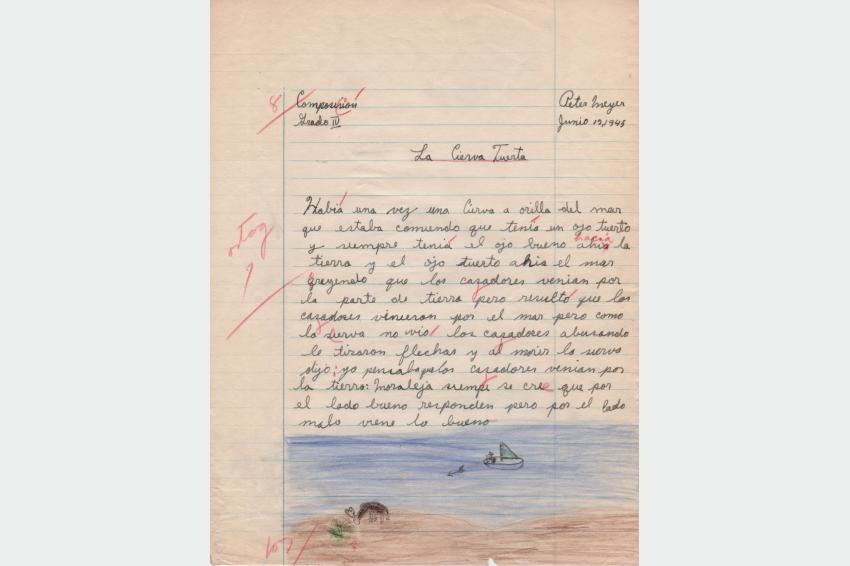 8
Composision
Peter Meyer
Grado IV
Junio 19, 1945
La Cierva Tuerta
Habiá una vez una Cierva a orilla del mar
que estaba comiendo que tenía un ojo tuerto
hacia
y siempre teniá el ojo bueno ahia la
tierra y el ojo tuerto ahia el mar
que los cazadores venian por
la parte de tierra pero resultó que los
cazadores vinieron por el mar pero como
la sierva no vió los cazadores abusando
le tiraron flechas y al morir la sierva
dijo: yo pensaba los cazadores venian por
la tierra: Moraleja siempre se cree que por
el lado bueno responden pero por el lado
malo viene lo bueno